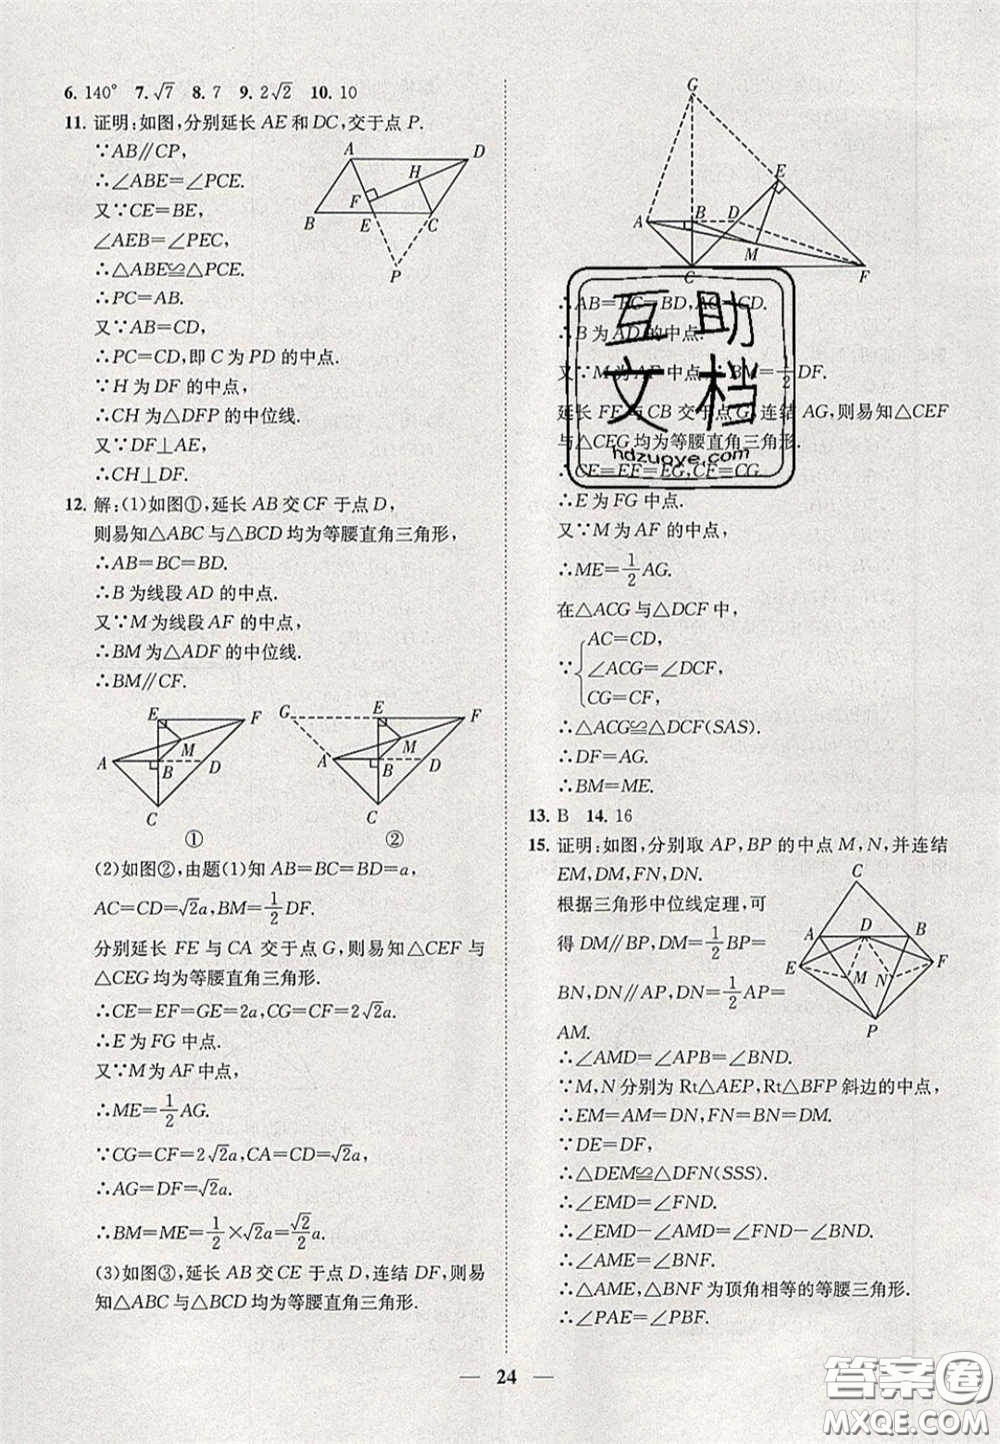 6. 140° 7. √7 8. 7 9. 2√2 10. 10
11. 证明:如图,分别延长 AE 和 DC,交于点 P.
∵AB∥CP,
∴∠ABE=∠PCE.
又∵CE=BE,
∠AEB=∠PEC,
∴△ABE≌△PCE.
∴PC=AB.
又∵AB=CD,
∴PC=CD,即 C 为 PD 的中点.
∵H 为 DF 的中点,
∴CH 为△DFP 的中位线.
又∵DF⊥AE,
∴CH⊥DF.
A
D
H
F
B
E
C
P
12. 解:(1)如图①,延长 AB 交 CF 于点 D,
则易知△ABC 与△BCD 均为等腰直角三角形,
∴AB=BC=BD.
∴B 为线段 AD 的中点.
又∵M 为线段 AF 的中点,
∴BM 为△ADF 的中位线.
∴BM∥CF.
E
F
M
A
B
D
C
①
G
E
F
M
A
B
D
C
②
(2)如图②,由题(1)知 AB=BC=BD=a,
AC=CD=√2a,BM=1/2DF.
分别延长 FE 与 CA 交于点 G,则易知△CEF 与
△CEG 均为等腰直角三角形.
∴CE=EF=GE=2a,CG=CF=2√2a.
∴E 为 FG 中点.
又∵M 为 AF 中点,
∴ME=1/2AG.
∵CG=CF=2√2a,CA=CD=√2a,
∴AG=DF=√2a.
∴BM=ME=1/2×√2a=√2/2a.
(3)如图③,延长 AB 交 CE 于点 D,连结 DF,则易
知△ABC 与△BCD 均为等腰直角三角形.
G
E
A
B
D
M
C
F
∴AB=BC=BD,AC=CD.
∴B 为 AD 的中点.
又∵M 为 AF 的中点,∴BM=1/2DF.
延长 FE 与 CB 交于点 G,连结 AG,则易知△CEF
与△CEG 均为等腰直角三角形.
∴CE=EF=EG,CF=CG.
∴E 为 FG 中点.
又∵M 为 AF 的中点,
∴ME=1/2AG.
在△ACG 与△DCF 中,
AC=CD,
∵ ∠ACG=∠DCF,
CG=CF,
∴△ACG≌△DCF(SAS).
∴DF=AG.
∴BM=ME.
13. B 14. 16
15. 证明:如图,分别取 AP,BP 的中点 M,N,并连结
EM,DM,FN,DN.
根据三角形中位线定理,可
得 DM∥BP,DM=1/2BP=
BN,DN∥AP,DN=1/2AP=
AM.
∴∠AMD=∠APB=∠BND.
∵M,N 分别为 Rt△AEP,Rt△BFP 斜边的中点,
∴EM=AM=DN,FN=BN=DM.
∵DE=DF,
∴△DEM≌△DFN(SSS).
∴∠EMD=∠FND.
∴∠EMD−∠AMD=∠FND−∠BND.
∴∠AME=∠BNF.
∴△AME,△BNF 为顶角相等的等腰三角形.
∴∠PAE=∠PBF.
C
A
D
B
E
F
M
N
P
互助
文档
hdzuoye.com
24
答案圈
MXQE.COM